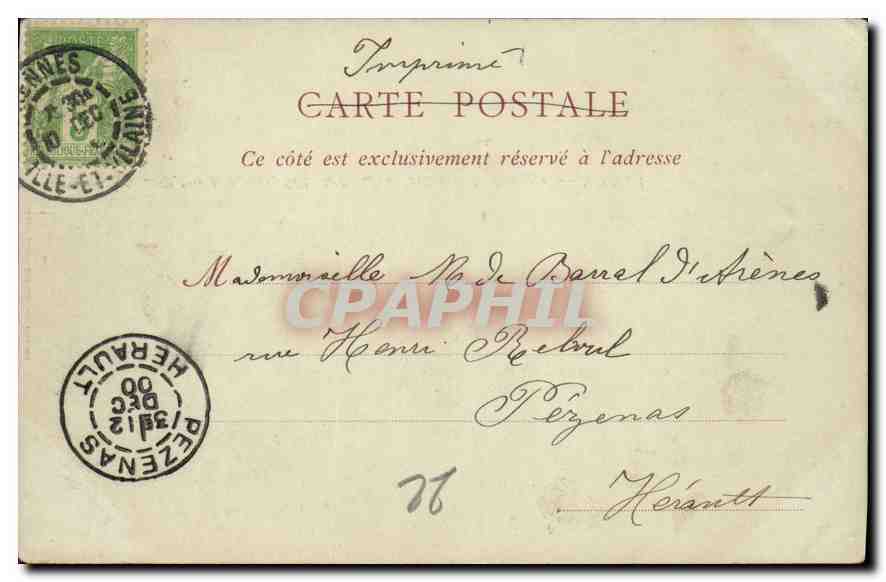 Imprimé
CARTE POSTALE
Ce côté est exclusivement réservé à l'adresse
Mademoiselle M de Barral d'Arènes
rue Henri Reboul
Pézenas
Hérault
CPAPHIL
POSTE
RENNES
DEC
ILLE-ET-VILAINE
PEZENAS
HERAULT
3E 12
DEC
00